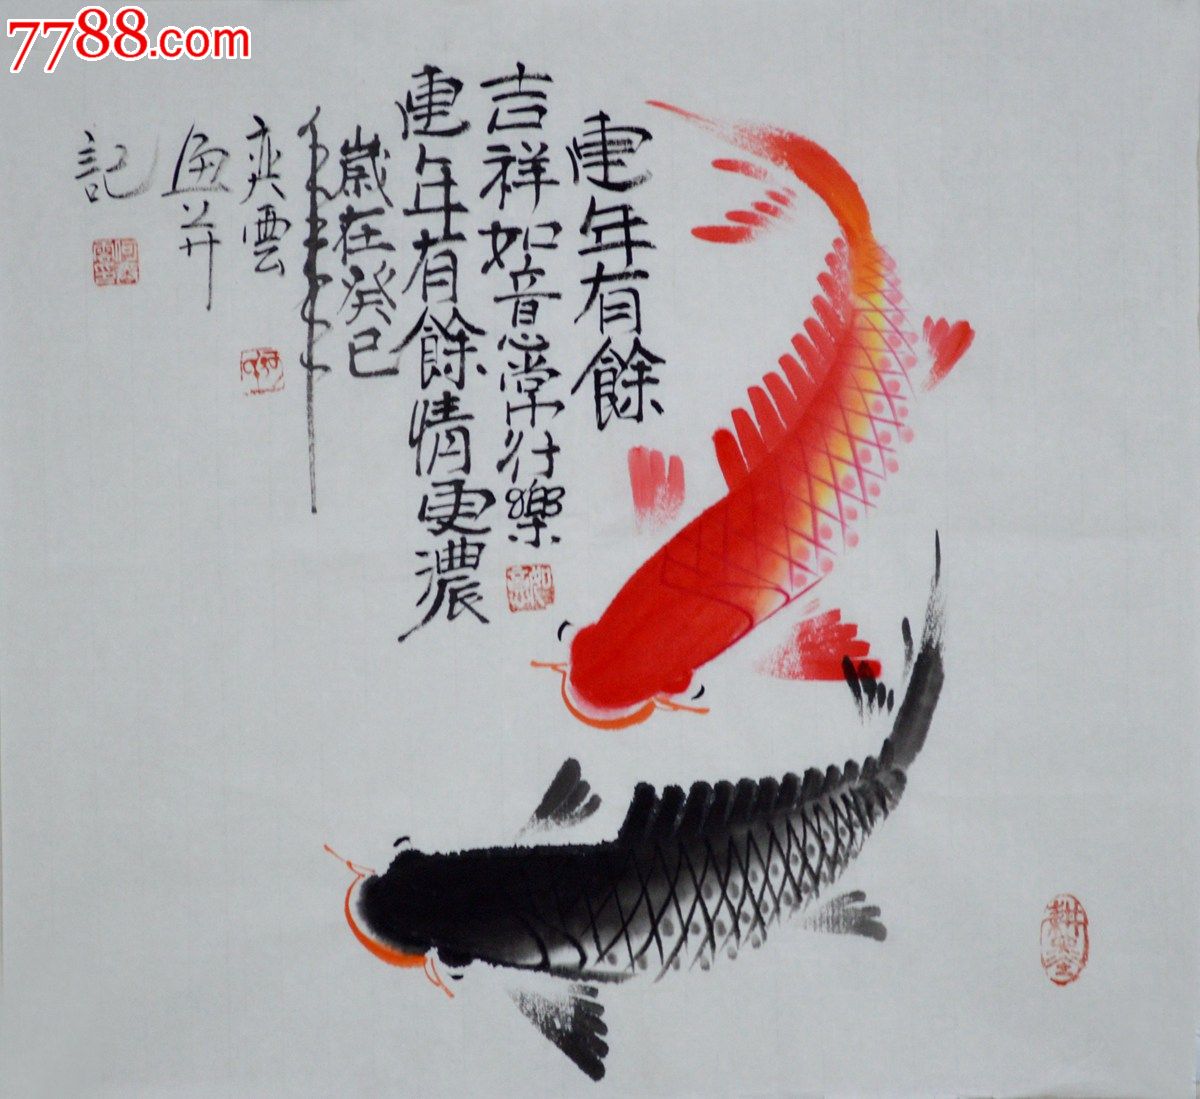 7788.com
連年有餘
吉祥如意常行樂
連年有餘情更濃
歲在癸巳
雲
畫并
記